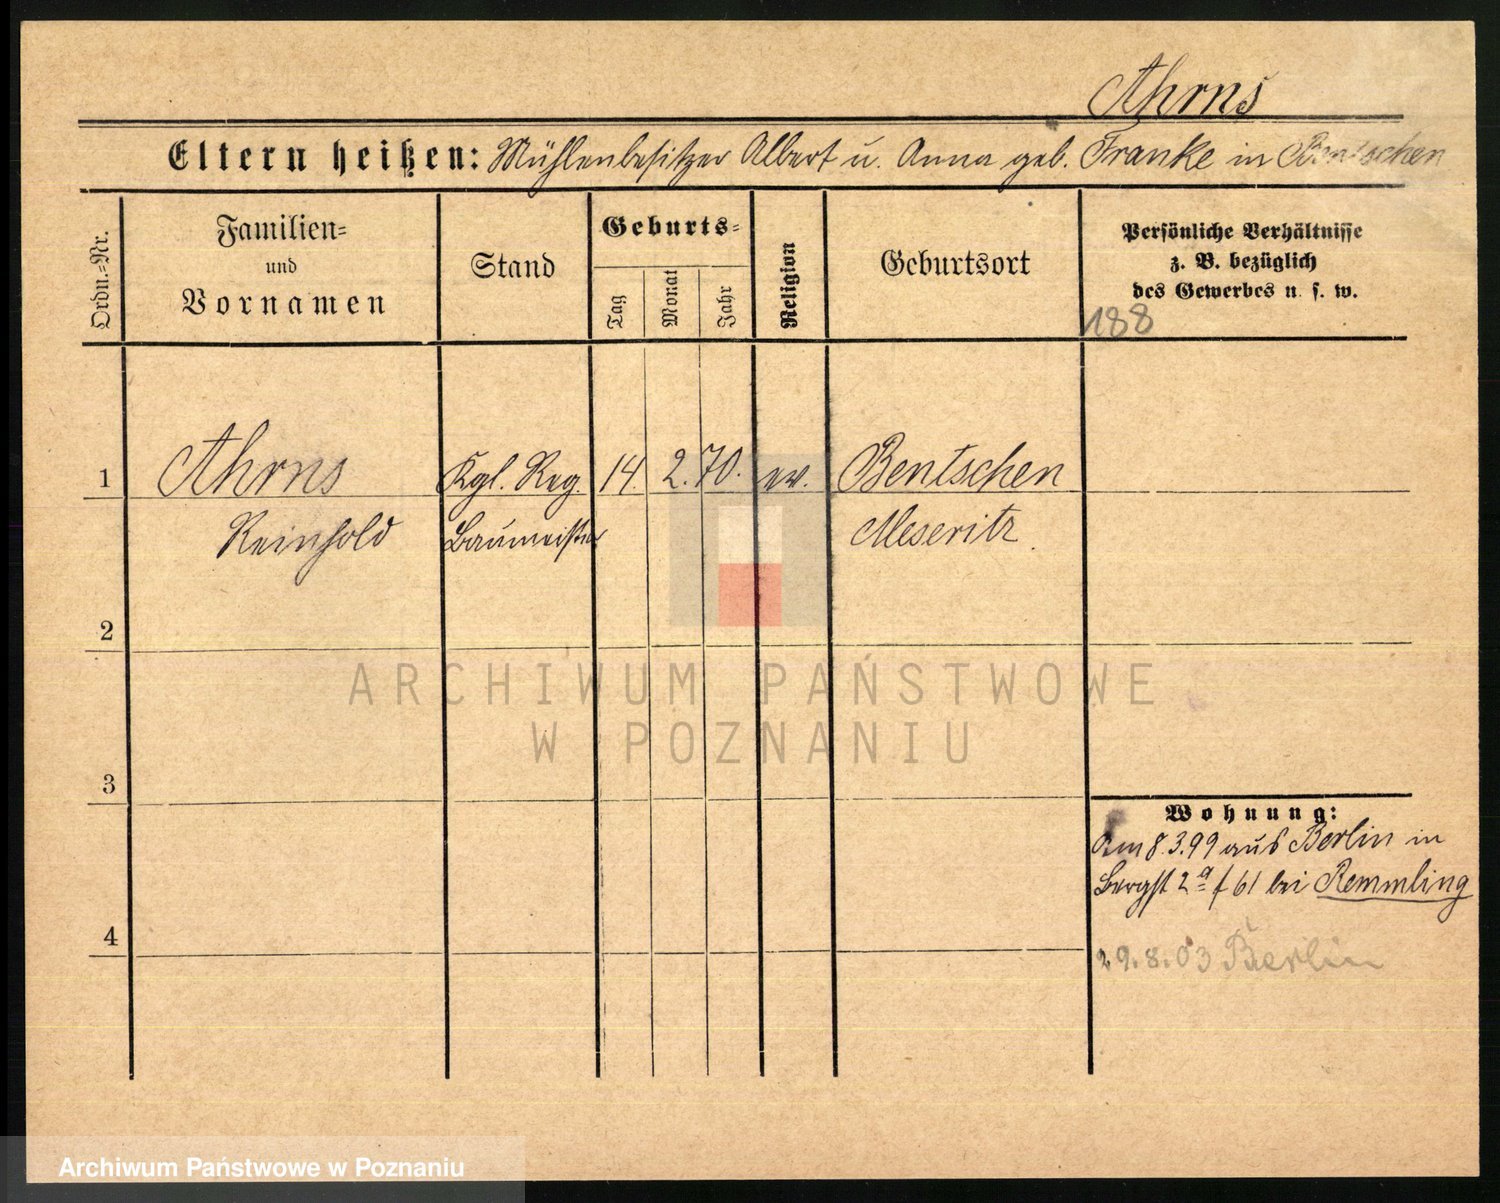 Ahrns
Eltern heißen: Mühlenbesitzer Albert u. Anna geb. Franke in Bentschen
Ordn.=Nr.
Familien=
und
Vornamen
Stand
Geburts=
Tag
Monat
Jahr
Religion
Geburtsort
Persönliche Verhältnisse
z. B. bezüglich
des Gewerbes u. s. w.
188
1 Ahrns Kgl. Reg. 14. 2. 70. ev. Bentschen
Reinhold Baumeister Meseritz
2
ARCHIWUM PAŃSTWOWE
W POZNANIU
3
Wohnung:
Am 8.3.99 aus Berlin in
Bergst 2a f 61 bei Remmling
4
29.8.03 Berlin
Archiwum Państwowe w Poznaniu